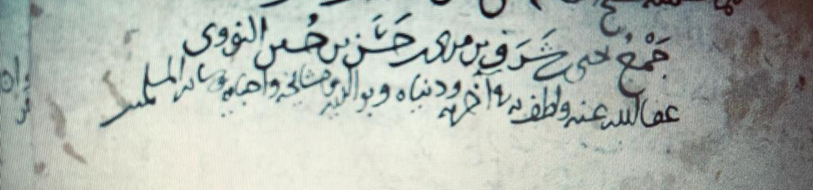 جَمْعُ يحيى بن شَرَفِ بن مري بن حَسَن بن حُسين النووى
عفا الله عنه ولطف به في آخرته ودنياه وبوالديه ومشايخه واحبابه وسائر المسلمين